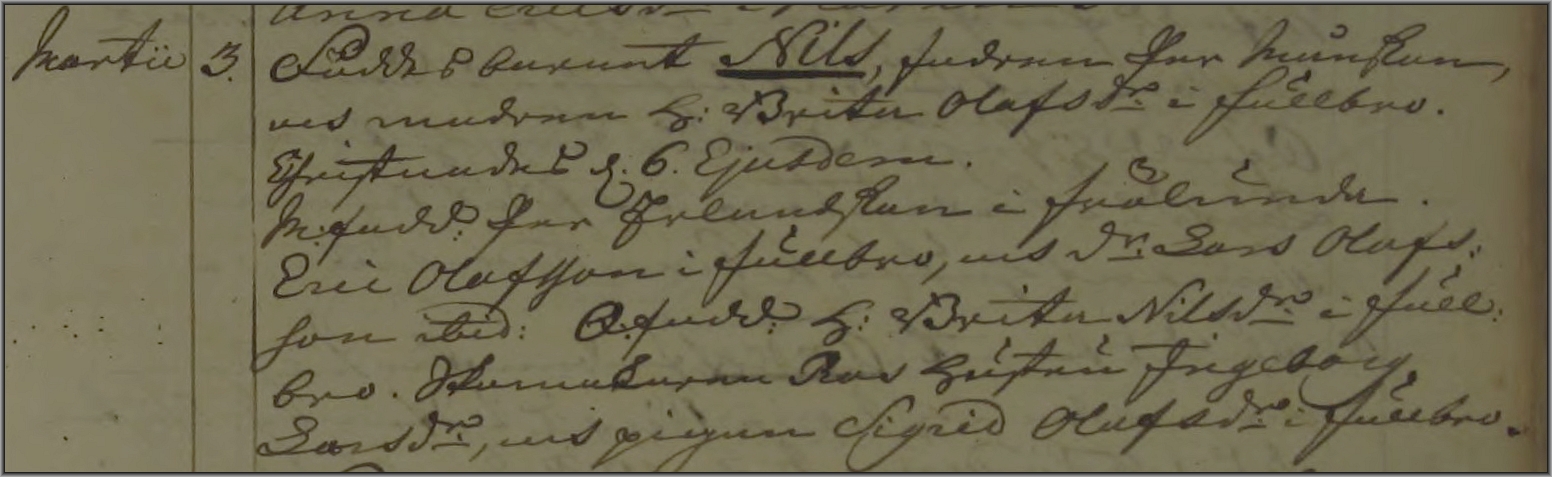 Martii 3. Föddes barnet Nils, fadren Per Månsson,
och modren H: Brita Olafsdr i Fullbro.
Christnades d. 6. Ejusdem.
M.fadd: Per Erlandsson i Frölunda.
Eric Olafsson i Fullbro, och Dr. Lars Olafs:
son ibid: Q.fadd: H: Brita Nilsdr i Full:
bro. Skomakaren hustru Ingeborg
Larsdr, och pigan Sigrid Olafsdr i Fullbro.